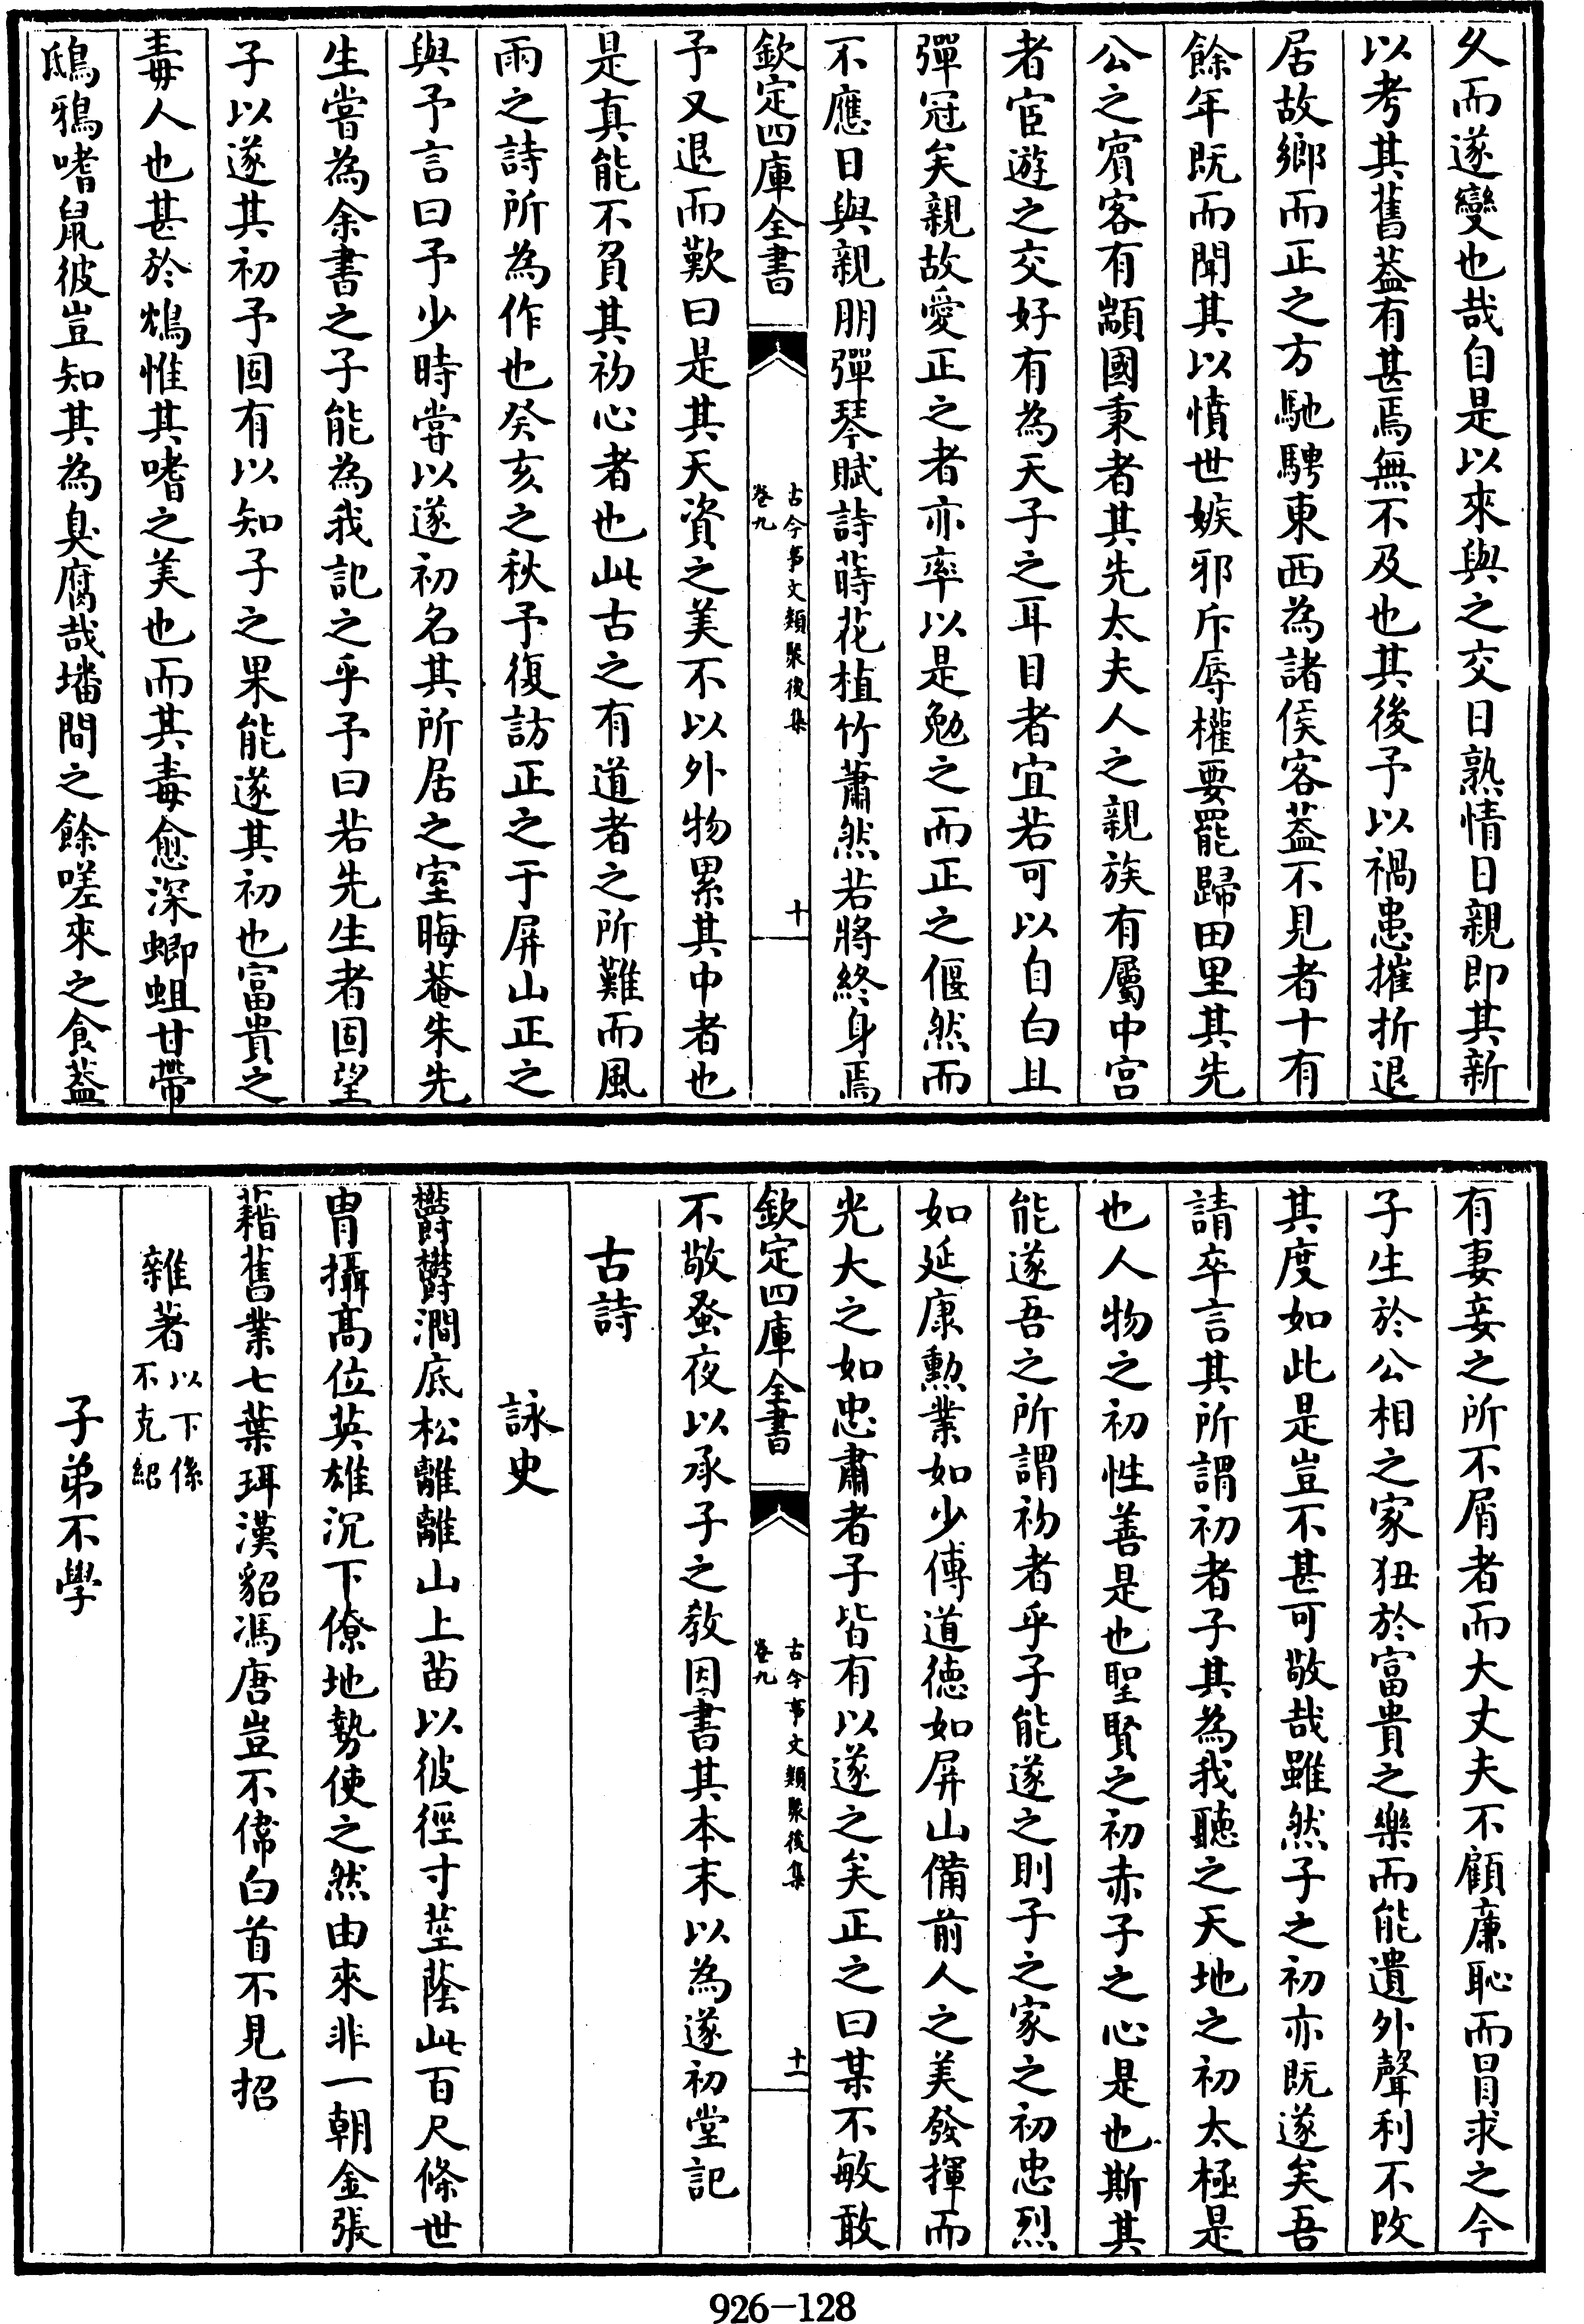 久而遂變也哉自是以來與之交日熟情日親即其新
以考其舊葢有甚焉無不及也其後予以禍患摧折退
居故鄉而正之方馳騁東西為諸侯客葢不見者十有
餘年既而聞其以憤世嫉邪斥辱權要罷歸田里其先
公之賓客有顓國秉者其先太夫人之親族有屬中宫
者宦遊之交好有為天子之耳目者宜若可以自白且
彈冠矣親故愛正之者亦率以是勉之而正之偃然而
不應日與親朋彈琴賦詩蒔花植竹蕭然若將終身焉
欽定四庫全書
古今事文類聚後集
卷九
十
予又退而歎曰是其天資之美不以外物累其中者也
是真能不負其初心者也此古之有道者之所難而風
雨之詩所為作也癸亥之秋予復訪正之于屏山正之
與予言曰予少時嘗以遂初名其所居之室晦菴朱先
生嘗為余書之子能為我記之乎予曰若先生者固望
子以遂其初予固有以知子之果能遂其初也富貴之
毒人也甚於鴆惟其嗜之美也而其毒愈深蝍蛆甘帶
鴟鴉嗜鼠彼豈知其為臭腐哉墦間之餘嗟來之食葢
有妻妾之所不屑者而大丈夫不顧廉恥而冒求之今
子生於公相之家狃於富貴之樂而能遺外聲利不改
其度如此是豈不甚可敬哉雖然子之初亦既遂矣吾
請卒言其所謂初者子其為我聽之天地之初太極是
也人物之初性善是也聖賢之初赤子之心是也斯其
能遂吾之所謂初者乎子能遂之則子之家之初忠烈
如延康勲業如少傅道德如屏山備前人之美發揮而
光大之如忠肅者子皆有以遂之矣正之曰某不敏敢
欽定四庫全書
古今事文類聚後集
卷九
十一
不敬蚤夜以承子之教因書其本末以為遂初堂記
古詩
詠史
欝欝澗底松離離山上苗以彼徑寸莖蔭此百尺條世
胄攝髙位英雄沉下僚地勢使之然由來非一朝金張
藉舊業七葉珥漢貂馮唐豈不偉白首不見招
雜著以下係
不克紹
子弟不學
926-128